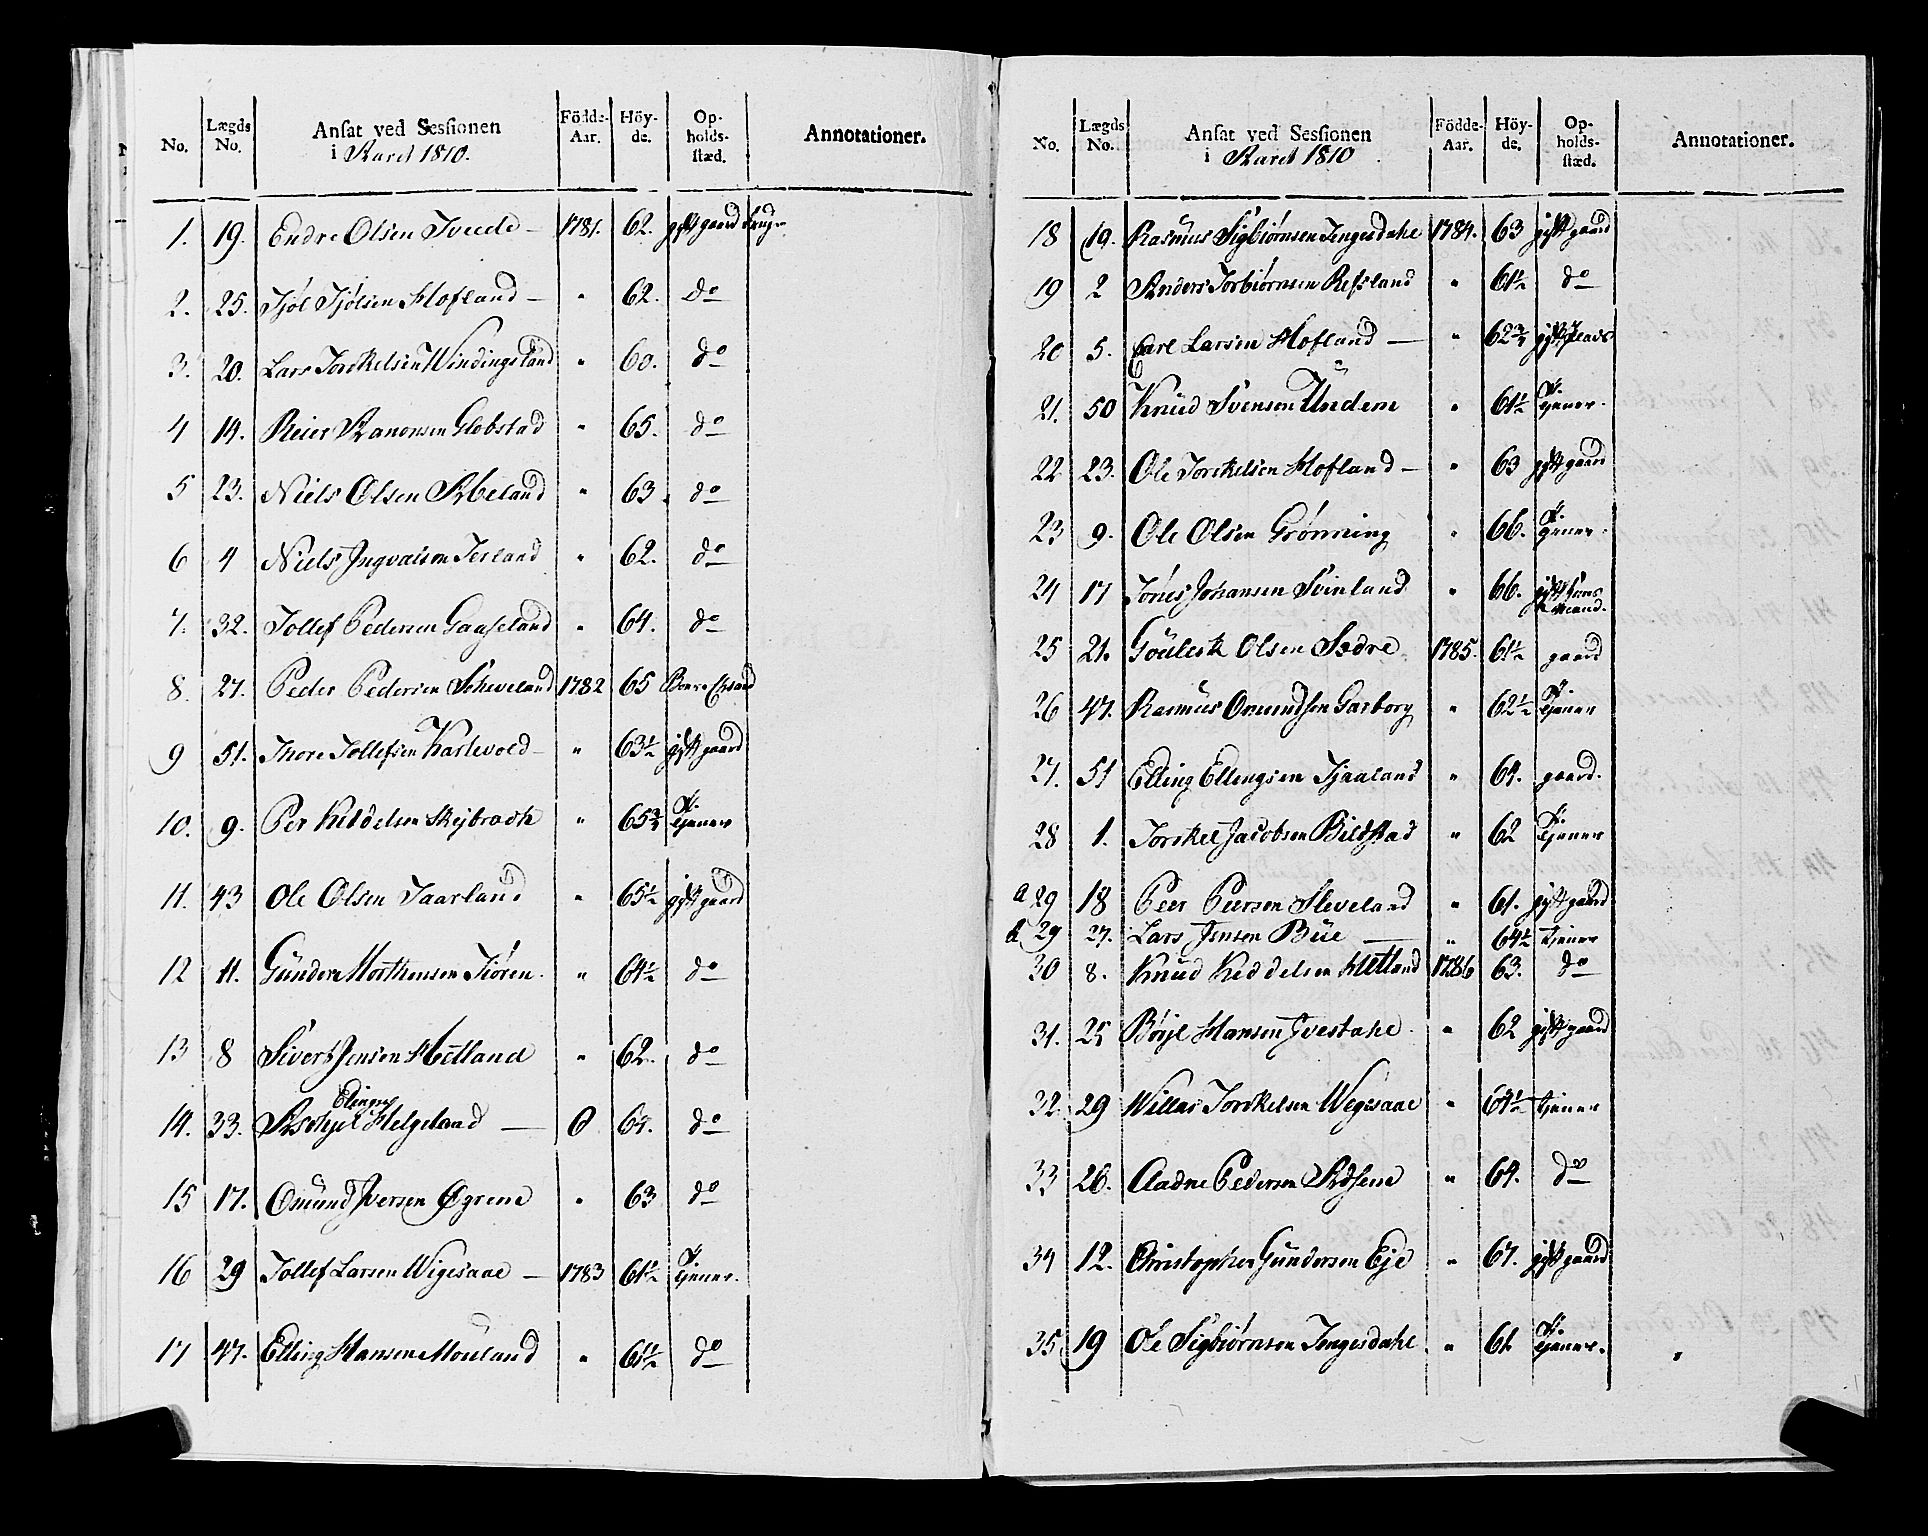 No. Lægds No. Ansat ved Sessionen i Aaret 1810. Födde-Aar. Höy-de. Op-holds-stæd. Annotationer.
1. 19. Endre Olsen Tvede — 1781. 62. gift gaard brug
2. 25. Tjøl Tjølsen Hofland — " 62. do
3. 20. Lars Torkelsen Windingsland " 60. do
4 14. Reier Aanonsen Globstad " 65. do
5 23. Niels Olsen Abeland " 63. do
6 4 Niels Ingvalsen Jerland " 62. do
7. 32. Tollef Pedersen Gaaseland " 64. do
8. 27. Peder Pedersen Scheveland 1782 65
9 51. Thore Tollefsen Karlevold — " 63½ gift gaard
10. 9. Per Kieddelsen Skejbrech " 65¾ U. tjener
11. 43 Ole Olsen Taarland " 65½ gift gaard
12 11. Gunder Morthensen Tiøren. " 64½ do
13 8 Sivert Jensen Hetland " 62. do
14. 33. Aschiel Elingsen Helgeland — O 64. do
15 17. Omund Iversen Øgrene " 63 do
16 29 Tollef Larsen Wigesaae — 1783 61½ U. tjener.
17 47. Elling Hansen Mouland " 61½ do
No. Lægds No. Ansat ved Sessionen i Aaret 1810 Födde-Aar. Höy-de. Op-holds-stæd. Annotationer.
18 19. Rasmus Sigbiørnsen Tengesdahl 1784. 63 gift gaard
19 2 Anders Torbiørnsen Refsland " 61½ do
20 5. Carl Larsen Hofland — " 62¾ gift plads
21. 50 Knud Svensen Undem " 61½ U. tjener.
22 23. Ole Torkelsen Hofland — " 63 gift gaard
23 9. Ole Olsen Grønning " 66. U. tjener.
24 17 Tønes Johansen Svinland " 66. gift huusmand.
25 21. Goulesk Olsen Sædre 1785. 61½ gaard
26 47. Rasmus Omundsen Garborg " 62½ U. tjener
27. 51 Elling Ellingsen Tjaaland " 64. gaard.
28 1. Torkel Jacobsen Bildstad " 62 U. tjener
a 29 18 Peer Peersen Sleveland " 61. gift gaard
b 29 27. Lars Jensen Bue — " 64½ tjener
30 8. Knud Kieddelsen Hetland 1786 63. do
31. 25 Børje Hansen Tvestahl " 62 gift gaard
32. 29 Willas Torkelsen Wegesaae " 64½ tjener
33 26. Aadne Pedersen Adsene " 64. do
34 12. Christopher Gundersen Eje " 67. gift gaard
35 19 Ole Sigbiørnsen Tengesdahl. " 61 U. tjener.